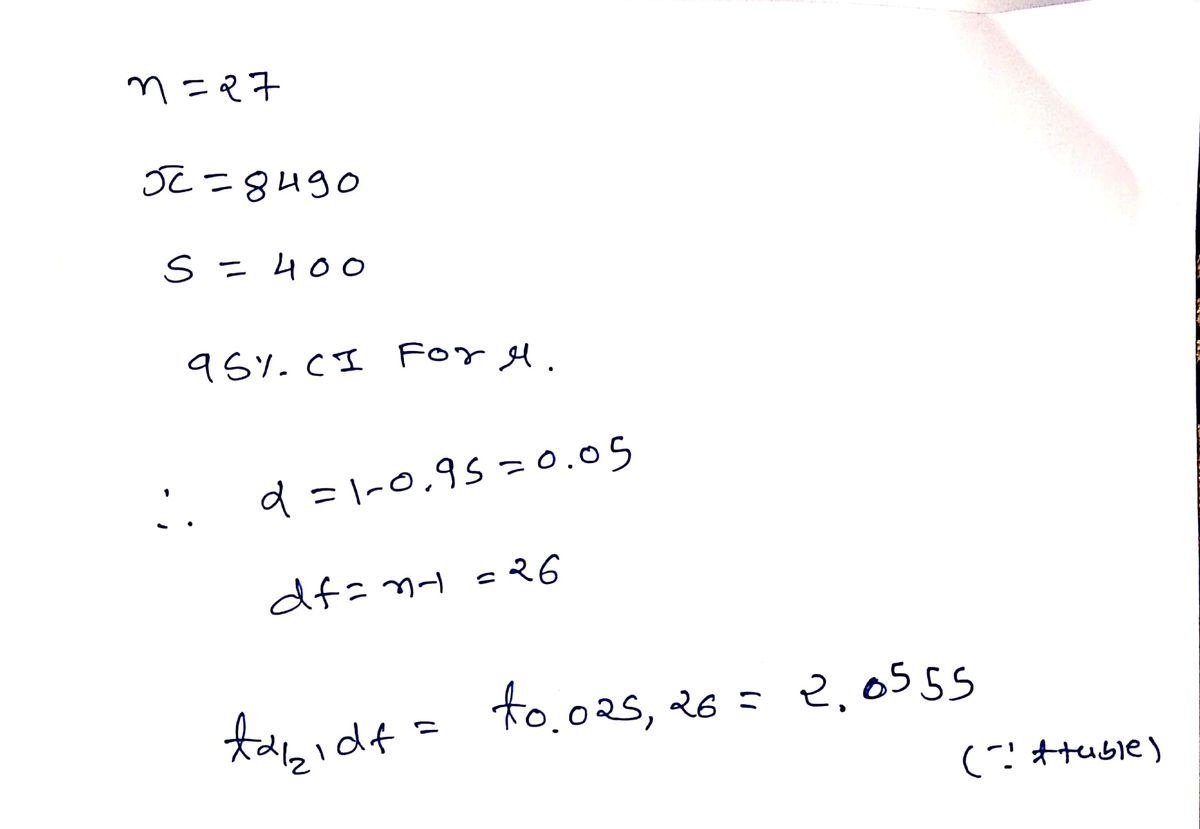 n = 27
x̄ = 8490
S = 400
95%. CI For μ.
∴ α = 1-0.95 = 0.05
df = n-1 = 26
tα/2, df = t0.025, 26 = 2.0555
(∵ t table)